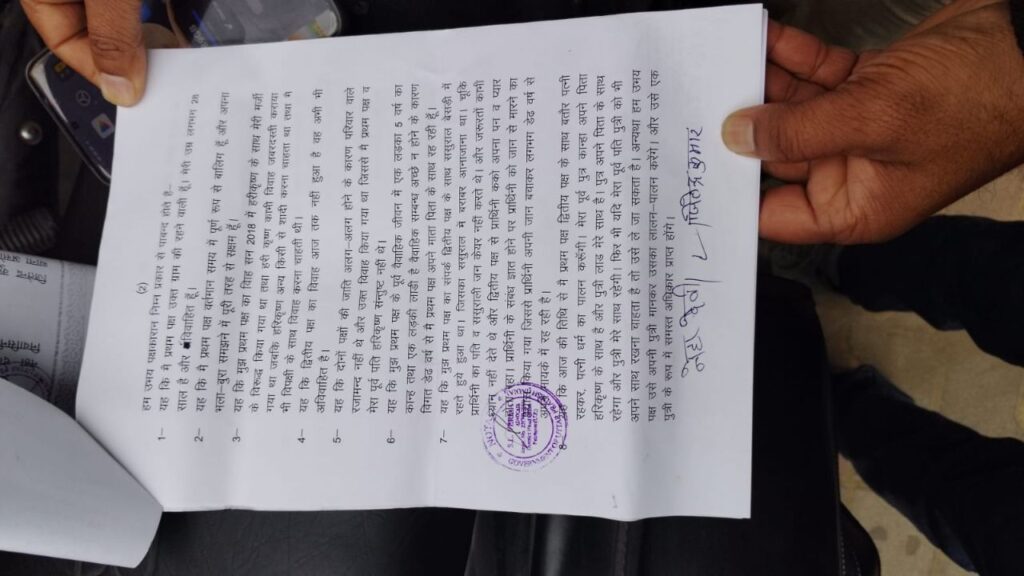 (2)
हम उभय पक्षकारान निम्न प्रकार से पाबन्द होते है–
1– यह कि मै प्रथम पक्ष उक्त ग्राम की रहने वाली हूँ। मेरी उम्र लगभग 28
साल है और अविवाहित हूँ।
2– यह कि मै प्रथम पक्ष वर्तमान समय में पूर्ण रूप से बालिग हूँ और अपना
भला–बुरा समझने में पूरी तरह से सक्षम हूँ।
3– यह कि मुझ प्रथम पक्ष का विवाह सन 2018 में हरिकृष्ण के साथ मेरी मर्जी
के विरूद्ध किया गया था तथा हरी कृष्ण अपनी विवाह जबरदस्ती कराया
गया था जबकि हरिकृष्ण अन्य किसी से शादी करना चाहता था तथा मै
भी विपक्षी के साथ विवाह करना चाहती थी।
4– यह कि द्वितीय पक्ष का विवाह आज तक नहीं हुआ है वह अभी भी
अविवाहित है।
5– यह कि दोनो पक्षों की जाति अलग–अलग होने के कारण परिवार वाले
रजामन्द नही थे और उक्त विवाह किया गया था जिससे मै प्रथम पक्ष व
मेरा पूर्व पति हरिकृष्ण सन्तुष्ट नहीं थे।
6– यह कि मुझ प्रथम पक्ष के पूर्व वैवाहिक जीवन में एक लड़का 5 वर्ष का
कान्हा तथा एक लड़की लाडो है वैवाहिक सम्बन्ध अच्छे न होने के कारण
विगत डेढ़ वर्ष से मै प्रथम पक्ष अपने माता पिता के साथ रह रही हूँ।
7– यह कि मुझ प्रथम पक्ष का सम्पर्क द्वितीय पक्ष के साथ ससुराल बेगडी मे
रहते हुये हुआ था जिसका ससुराल में बराबर आनाजाना था। चूंकि
प्रार्थिनी का पति व ससुराली जन केयर नही करते थे। और जरूरतो का भी
ध्यान नहीं देते थे और द्वितीय पक्ष से प्रार्थिनी को अपना पन व प्यार
रहा। प्रार्थिनी के संबंध ज्ञात होने पर प्रार्थिनी को जान से मारने का
किया गया जिससे प्रार्थिनी अपनी जान बचाकर लगभग डेढ वर्ष से
मायके में रह रही है।
8– कि आज की तिथि से मै प्रथम पक्ष द्वितीय पक्ष के साथ बतौर पत्नी
रहकर, पत्नी धर्म का पालन करूंगी। मेरा पूर्व पुत्र कान्हा अपने पिता
हरिकृष्ण के साथ है और पुत्री लाडो मेरे साथ है पुत्र अपने पिता के साथ
रहेगा और पुत्री मेरे साथ रहेगी। फिर भी यदि मेरा पूर्व पति पुत्री को भी
अपने साथ रखना चाहता है तो उसे ले जा सकता है। अन्यथा हम उभय
पक्ष उसे अपनी पुत्री मानकर उसका लालन–पालन करेगे। और उसे एक
पुत्री के रूप में समस्त अधिकार प्राप्त होंगे।